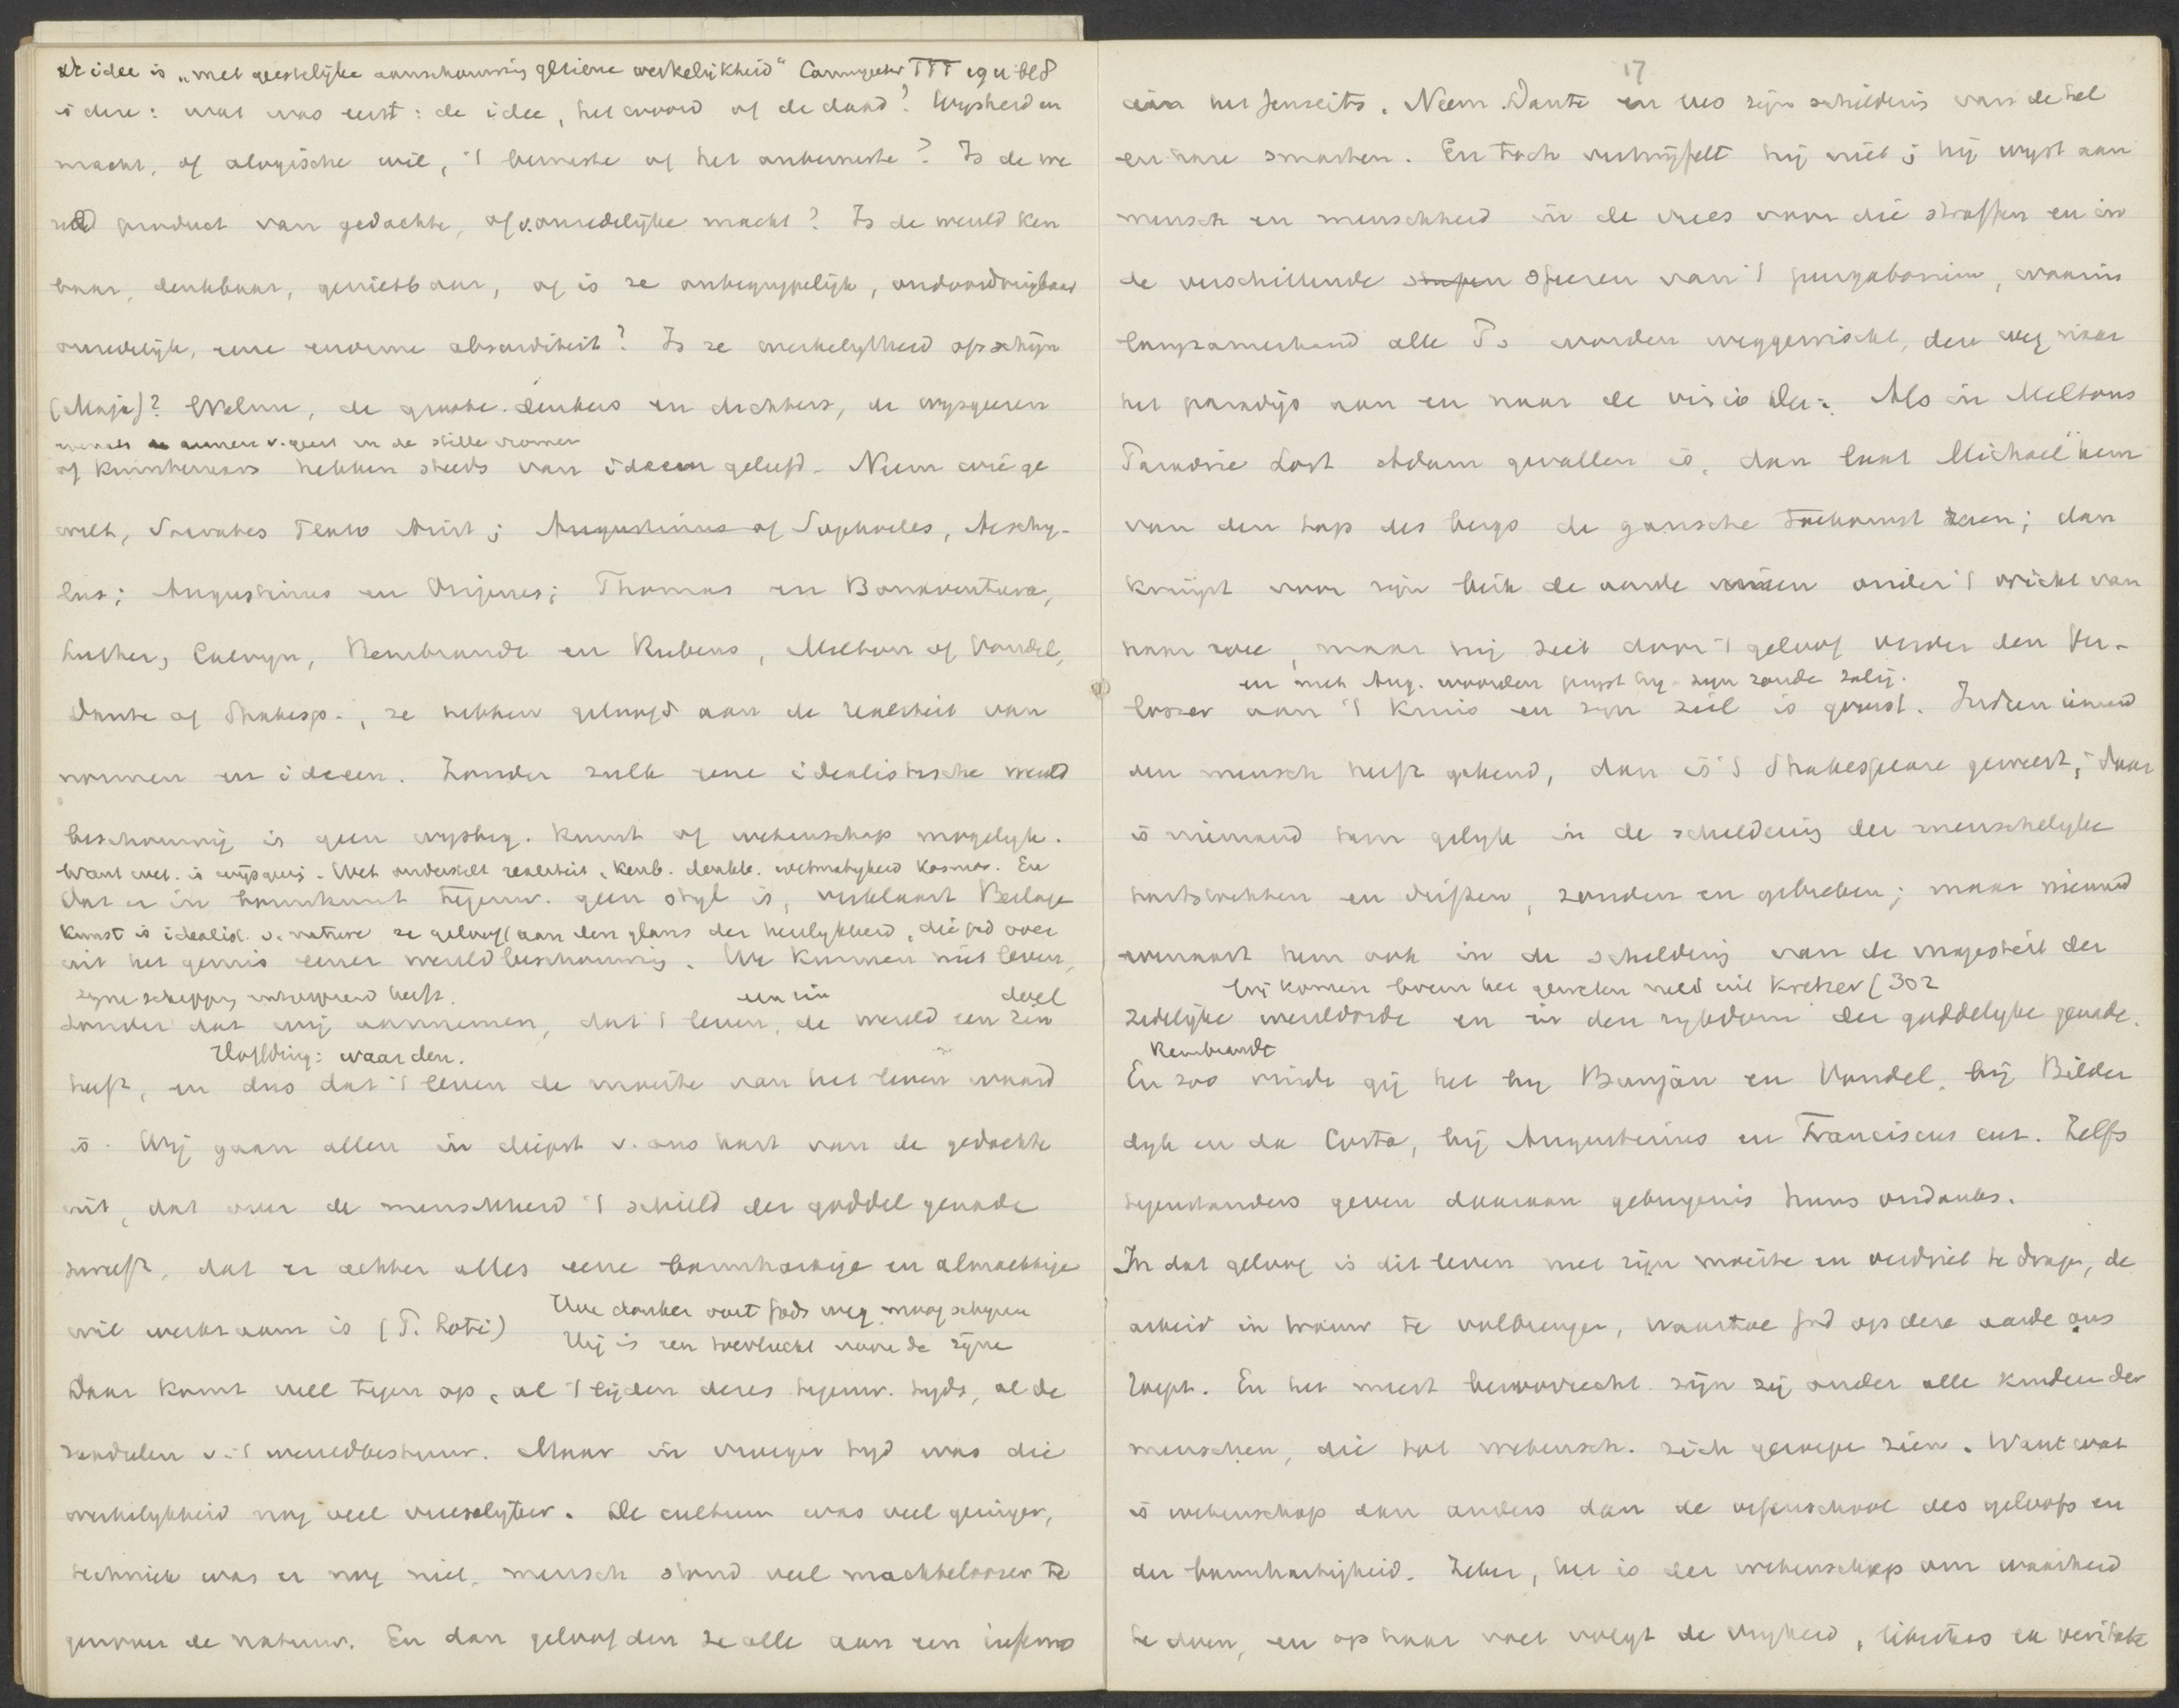 de idee is „met geestelijke aanschouwing geziene werkelijkheid" Carmgieter TTT 1911 bl 8
is deze: wat was eerst: de idee, het woord of de daad? Wijsheid en
macht, of alogische wil, 't bewuste of het onbewuste? Is de we
reld product van gedachte, of v. onredelijke macht? Is de wereld ken
baar, denkbaar, genietbaar, of is ze onbegrypelijk, ondoordringbaar
onredelijk, eene enorme absurditeit? Is ze werkelykheid of schijn
(Maja)? Welnu, de groote denkers en dichters, de wysgeeren
armen v. geest en de stille vromen
of kunstenaars hebben steeds van ideeen geleefd. Neem wie ge
wilt, Socrates Plato Arist; Augustinus of Sophocles, Aeschy-
lus; Augustinus en Origenes; Thomas en Bonaventura,
Luther, Calvyn, Rembrandt en Rubens, Milton of Vondel,
Dante of Shakesp., ze hebben geloofd aan de realiteit van
normen en ideeen. Zonder zulk eene idealistische wereld
beschouwing is geen wysbeg. kunst of wetenschap mogelyk.
Want wet. is wijsgeerig. Wet onderstelt realiteit, kenb. denkb. wetmatigheid kosmos. En
dat er in bouwkunst tegenw. geen styl is, verklaart Berlage
kunst is idealist. v. nature ze gelooft aan den glans der heerlykheid, die God over
uit het gemis eener wereldbeschouwing. We kunnen niet leven,
zyne schepping uitgespreid heeft. een zin doel
zonder dat wij aannemen, dat 't leven, de wereld een zin
Höffding: waarden.
heeft, en dus dat 't leven de moeite van het leven waard
is. Wij gaan allen in diepst v. ons hart van de gedachte
uit, dat over de menschheid 't schild der goddel genade
zweeft, dat er achter alles eene barmhartige en almachtige
wil werkzaam is (P. Loti) Hoe donker ooit Gods weg moog schynen
Hij is een toevlucht voor de zijne
Daar komt veel tegen op, al 't lijden dezes tegenw. tyds, al de
raadselen v. 't wereldbestuur. Maar in vroeger tyd was die
werkelykheid nog veel vreeselyker. De cultuur was veel geringer,
techniek was er nog niet, mensch stond veel machteloozer te
genover de natuur. En dan geloofden ze alle aan een inferno
17
aan het Jenseits. Neem Dante en lees zijn schilderis van de hel
en hare smarten. En toch vertwijfelt hij niet; hij wyst aan
mensch en menschheid in de vrees voor die straffen en in
de verschillende stupen sferen van 't purgatorium, waarin
langzamerhand alle Ps worden weggewischt, den weg naar
het paradijs aan en naar de visio Dei. Als in Miltons
Paradise Lost Adam gevallen is, dan laat Michael hem
van den top des bergs de gansche toekomst zien; dan
krimpt voor zijn blik de aarde ineen onder 't wicht van
haar wee, maar hij ziet door 't geloof verder den Ver-
en met Aug. woorden pryst hy zyn zonde zalig.
losser aan 't kruis en zyn ziel is gerust. Indien iemand
den mensch heeft gekend, dan is 't Shakespeare geweest; daar
is niemand hem gelyk in de schildering der menschelyke
hartstochten en driften, zonden en gebreken; maar niemand
evenaart hem ook in de schildering van de majesteit der
Wij komen boven het geweten niet uit Kretzer (302
zedelijke wereldorde en in den rykdom der goddelyke genade.
Rembrandt
En zoo vindt gij het by Bunjan en Vondel, bij Bilder
dyk en da Costa, bij Augustinus en Franciscus enz. Zelfs
tegenstanders geven daaraan getuigenis huns ondanks.
In dat geloof is dit leven met zijn moeite en verdriet te dragen, de
arbeid in trouw te volbrengen, waartoe God op deze aarde ons
roept. En het meest bevoorrecht zijn zij onder alle kinderen der
menschen, die tot wetensch. zich geroepen zien. Want wat
is wetenschap dan anders dan de oefenschool des geloofs en
der barmhartigheid. Zeker, het is der wetenschap om waarheid
te doen, en op haar voet volgt de vryheid, libertas ex veritate